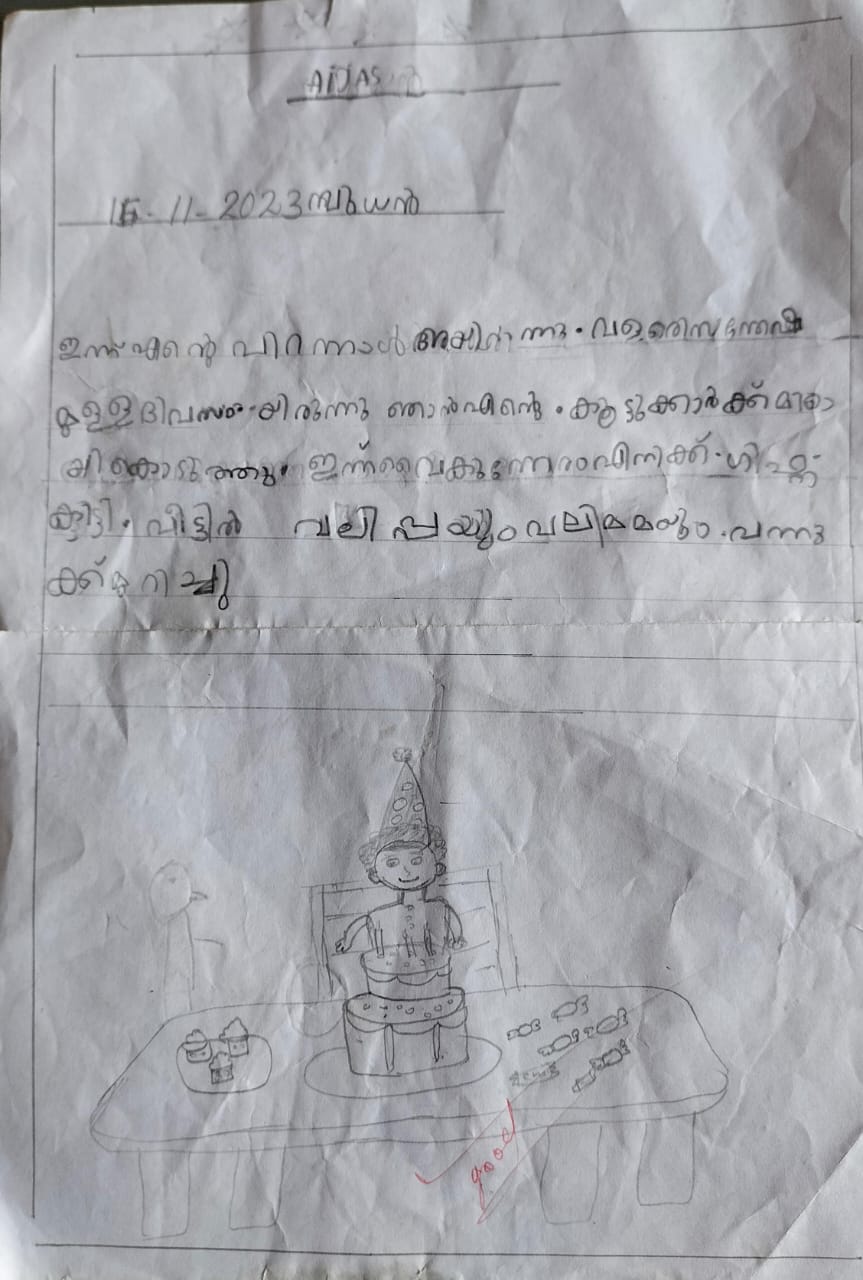 AIJAS
15-11-2023 ബുധൻ
ഇന്ന് എന്റെ പിറന്നാൾ ആയിരുന്നു. വളരെ സന്തോഷ
മുള്ള ദിവസം യിരുന്നു ഞാൻ എന്റെ. കൂട്ടുക്കാർക്ക് മിഠാ
യി കൊടുത്തു. ഇന്ന് വൈകുന്നേരം എനിക്ക്. ഗിഫ്റ്റ്
കിട്ടി. വീട്ടിൽ വലിപ്പയും വലിമ്മമയും. വന്നു
ക്ക് മുറിച്ചു
good